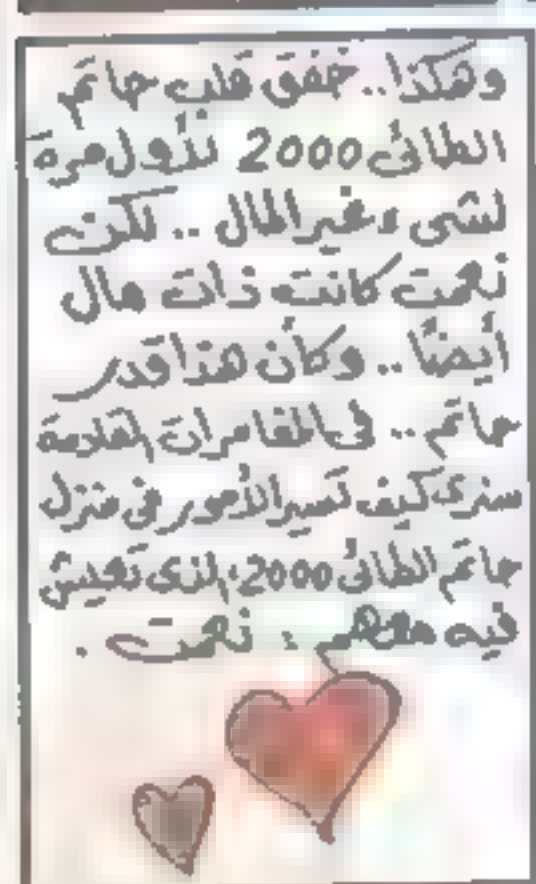 وهكذا.. خفق قلب حاتم
الطائى 2000 لأول مرة
لشىء غير المال .. لكن
نعمت كانت ذات مال
أيضًا .. وكأن هذا قدر
حاتم .. فى المغامرات القادمة
سنرى كيف تسير الأمور فى منزل
حاتم الطائى 2000، الذى تعيش
فيه معهم : نعمت .